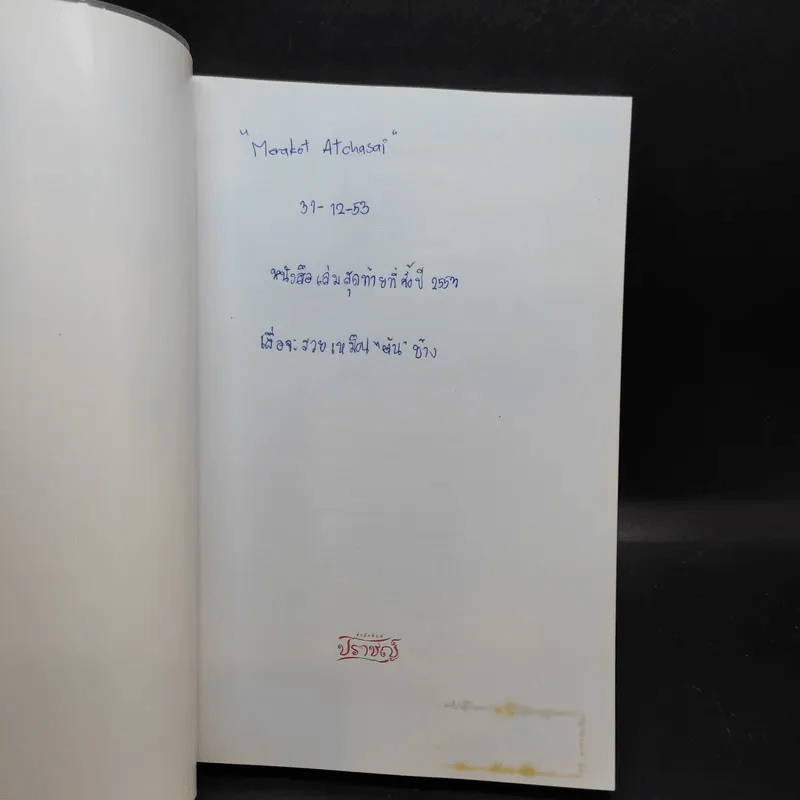 "Morakot Atchasai"
31-12-53
หนังสือเล่มสุดท้ายที่ซื้อปี 2553
เผื่อจะรวยเหมือน "ตัน" บ้าง
สำนักพิมพ์
ปราชญ์